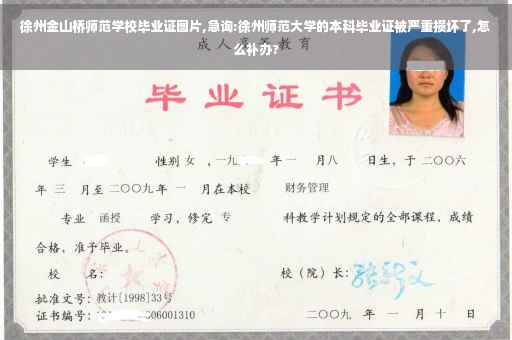 徐州金山桥师范学校毕业证图片,急询:徐州师范大学的本科毕业证被严重损坏了,怎
么补办?
成人高等教育
毕业证书
学生 性别 女 , 一九 年 一 月八 日生, 于 二〇〇六
年 三 月至 二〇〇九 年 一 月在本校 财务管理
专业 函授 学习, 修完 专 科教学计划规定的全部课程, 成绩
合格, 准予毕业。
校 名: 校(院)长:
批准文号: 教计[1998]33号
证书编号: 006001310 二〇〇九 年 一 月 十 日